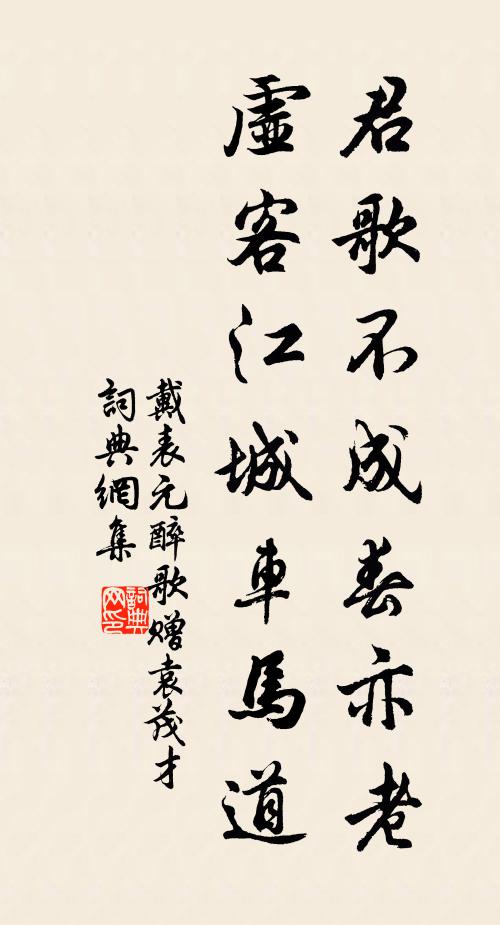 君歌不成春亦老
虛客江城車馬道
戴表元醉歌贈袁茂才
詞典網集
詞典
网印